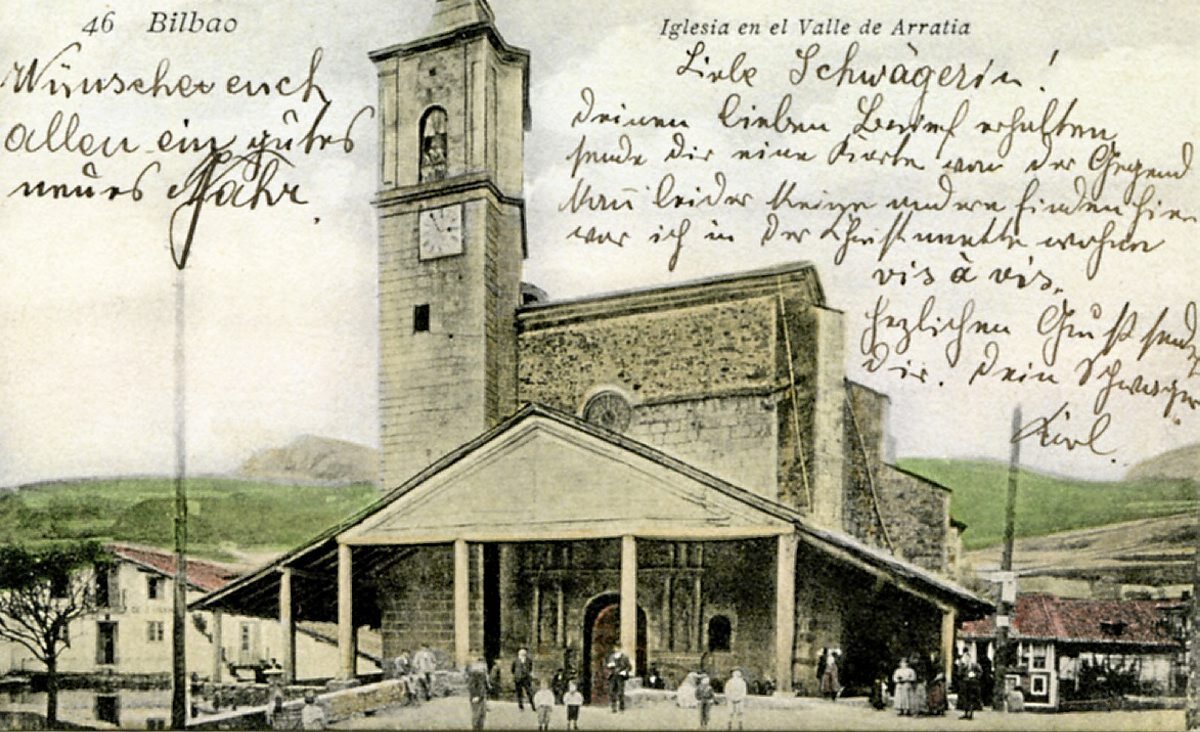 46 Bilbao
Iglesia en el Valle de Arratia
Wünsche euch
allen ein gutes
neues Jahr.
Liebe Schwägerin!
Deinen lieben Brief erhalten
sende dir eine Karte von der Gegend
leider keine andere finden hier
war ich in der Christmette wohne
vis à vis.
Herzlichen Gruß sendet
Dir. Dein Schwager
Karl.